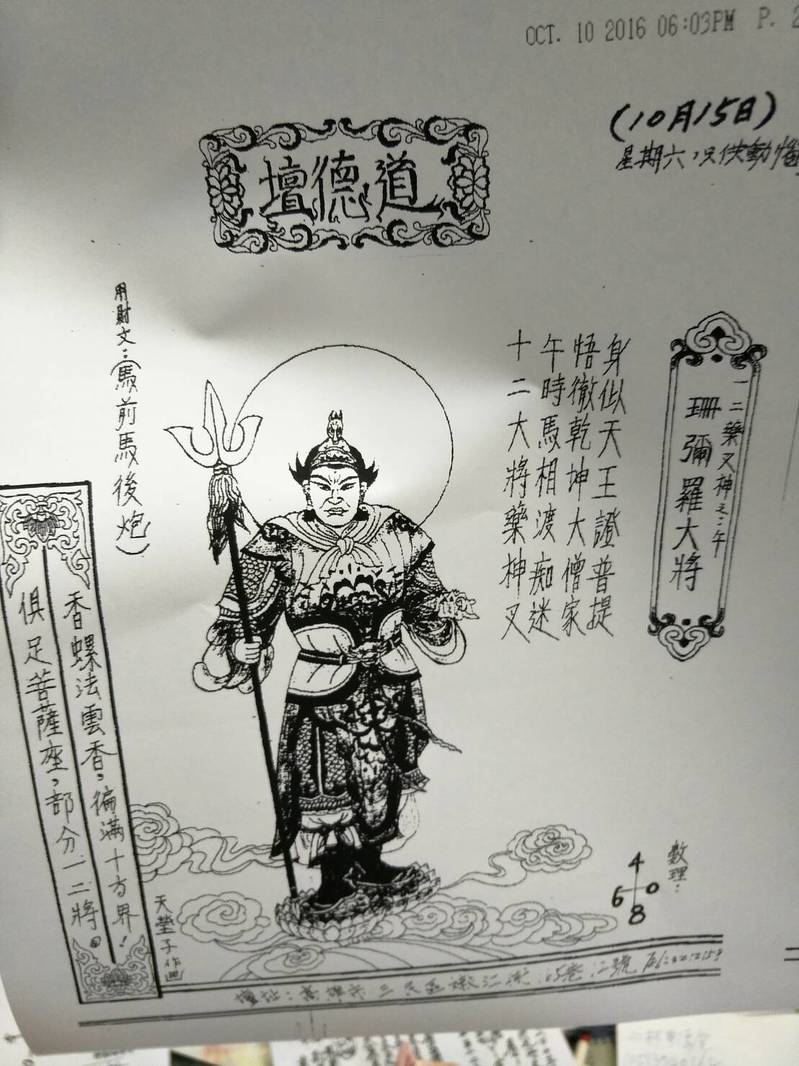 OCT. 10 2016 06:03PM P. 2
(10月15日)
星期六,只供動
道德壇
一二藥叉神之:午
珊彌羅大將
身似天王證普提
悟徹乾坤大僧家
午時馬相渡痴迷
十二大將藥神叉
用財文:(馬前馬後炮)
香螺法雲香,徧滿十方界!
俱足菩薩座,部分一二將。
數理:
4
6 0
8
天瑩子作画
壇址:高雄市三民區嫩江街 巷 號